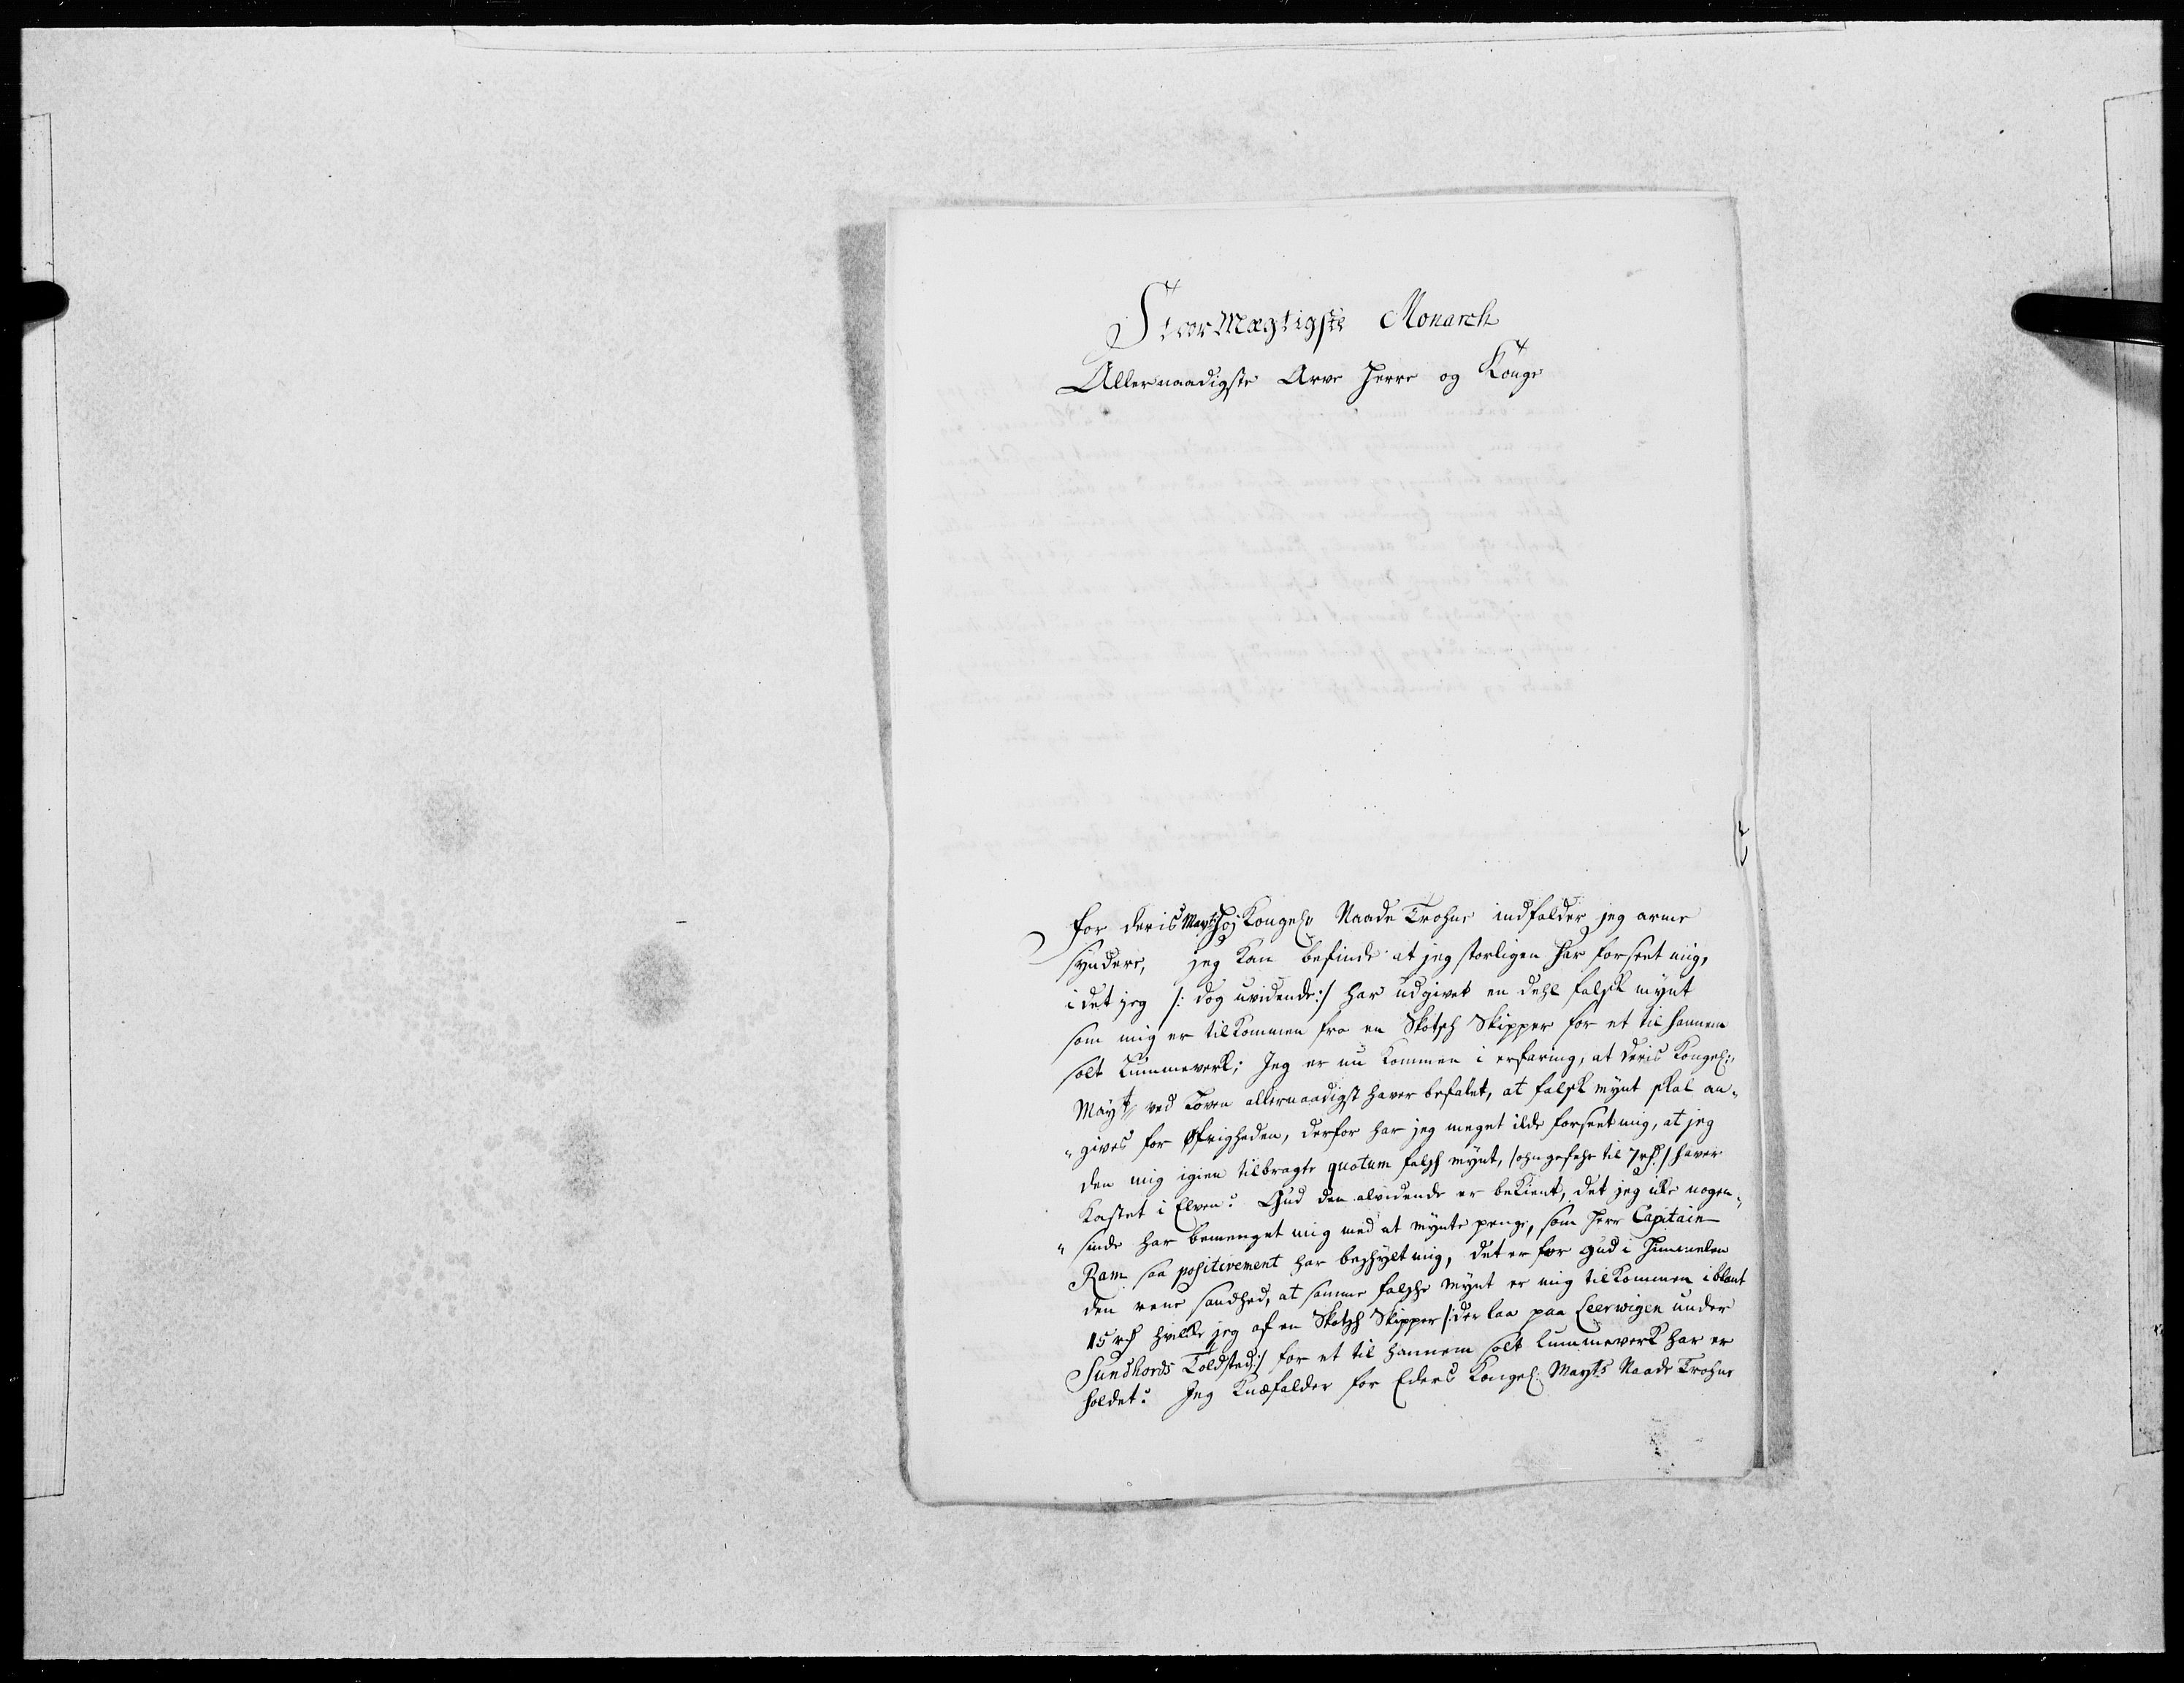 StorMægtigste Monarch
Allernaadigste Arve Herre og Konge
for deris Mayts Høj Kongel: Naade Trohne indfalder jeg arme
syndere, jeg kan befinde at jeg storligen har forseet mig,
i det jeg /: dog uvidende :/ har udgivet en dehl falsk mynt
som mig er tilkommen fra en Skotsch Skipper for et til hannem
solt Lummeverk; Jeg er nu kommen i erfaring, at deris Kongel:
Mayt: ved Loven allernaadigst haver befalet, at falsk mynt skal an-
"gives for Øfrigheden, derfor har jeg meget ilde forseet mig, at jeg
den mig igien tilbragte quotum falsch mynt, /ohngefehr til 7 rd:/ haver
kastet i Elven: Gud den alvidende er bekient, det jeg icke nogen-
"sinde har bemenget mig med at mynte penge, som Herr Capitain
Ram saa positivement har beskylt mig, det er for Gud i Himmelen
den rene sandhed, at samme falsche mynt er mig tilkommen iblant
15 rd hvilke jeg af en Skotsch Skipper /: der laa paa Leerwigen under
Sundhords Toldsted :/ for et til hannem solt Lummeverk har er
holdet: Jeg knæfalder for Eders Kongel: Mayts Naade Trohne